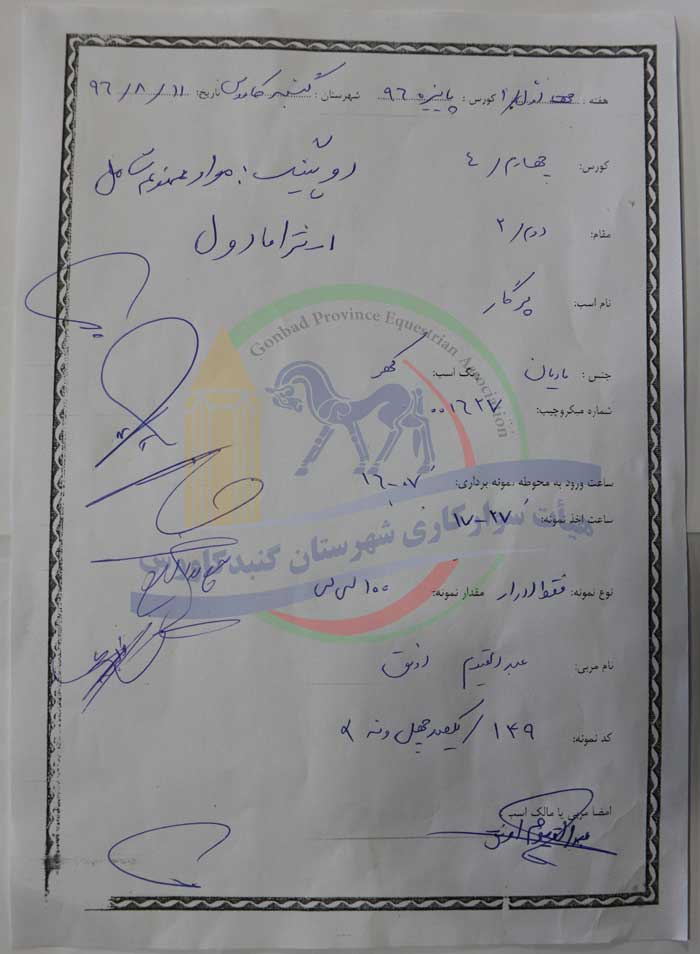 هفته : اول/۱ کورس : پاییزه ۹۶ شهرستان : گنبد کاووس تاریخ: ۹۶/۸/۱۱
کورس: چهارم/۴
دوپینگ: مواد ممنوعه شامل
مقام: دوم/۲
ارثرامادول
نام اسب: پرگار
Gonbad Province Equestrian Association
جنس : مادیان رنگ اسب: کهر
شماره میکروچیپ: ۰۰۱۶۲۷
ساعت ورود به محوطه نمونه برداری: ۱۶-۰۷
ساعت اخذ نمونه: ۱۷-۲۷
هیأت سوارکاری شهرستان گنبدکاووس
نوع نمونه: فقط ادرار مقدار نمونه: ۱۰۰ سی سی
نام مربی: عبدالقیوم
کد نمونه: ۱۴۹/یکصد چهل ونه
امضا مربی یا مالک اسب